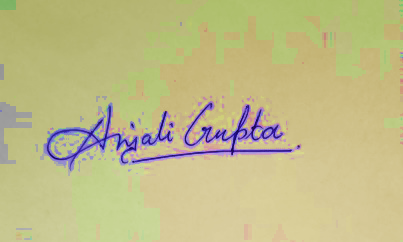 Anjali Gupta.